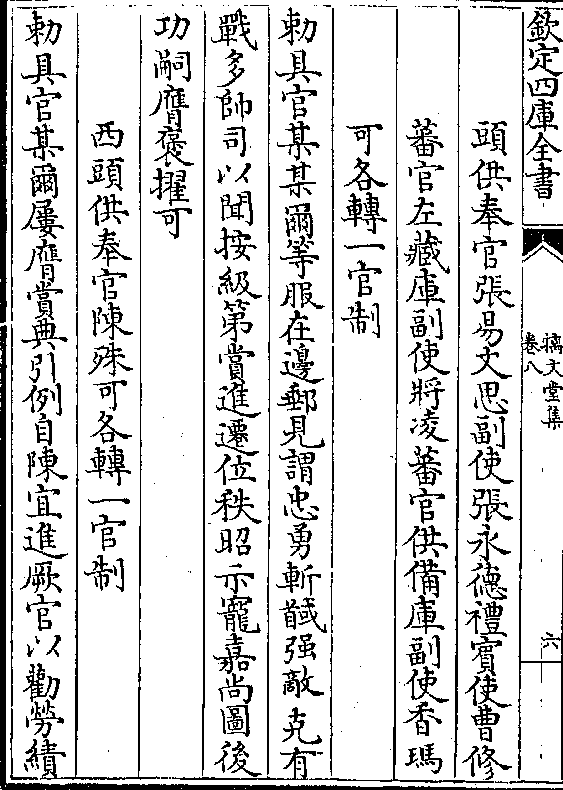 欽定四庫全書
摛文堂集
卷八
六
頭供奉官張易文思副使張永德禮賓使曹修
蕃官左藏庫副使將凌蕃官供備庫副使香瑪
可各轉一官制
勅具官某某爾等服在邊郵見謂忠勇斬馘强敵克有
戰多帥司以聞按級第賞進遷位秩昭示寵嘉尚圖後
功嗣膺褒擢可
西頭供奉官陳殊可各轉一官制
勅具官某爾屢膺賞典引例自陳宜進厥官以勸勞績